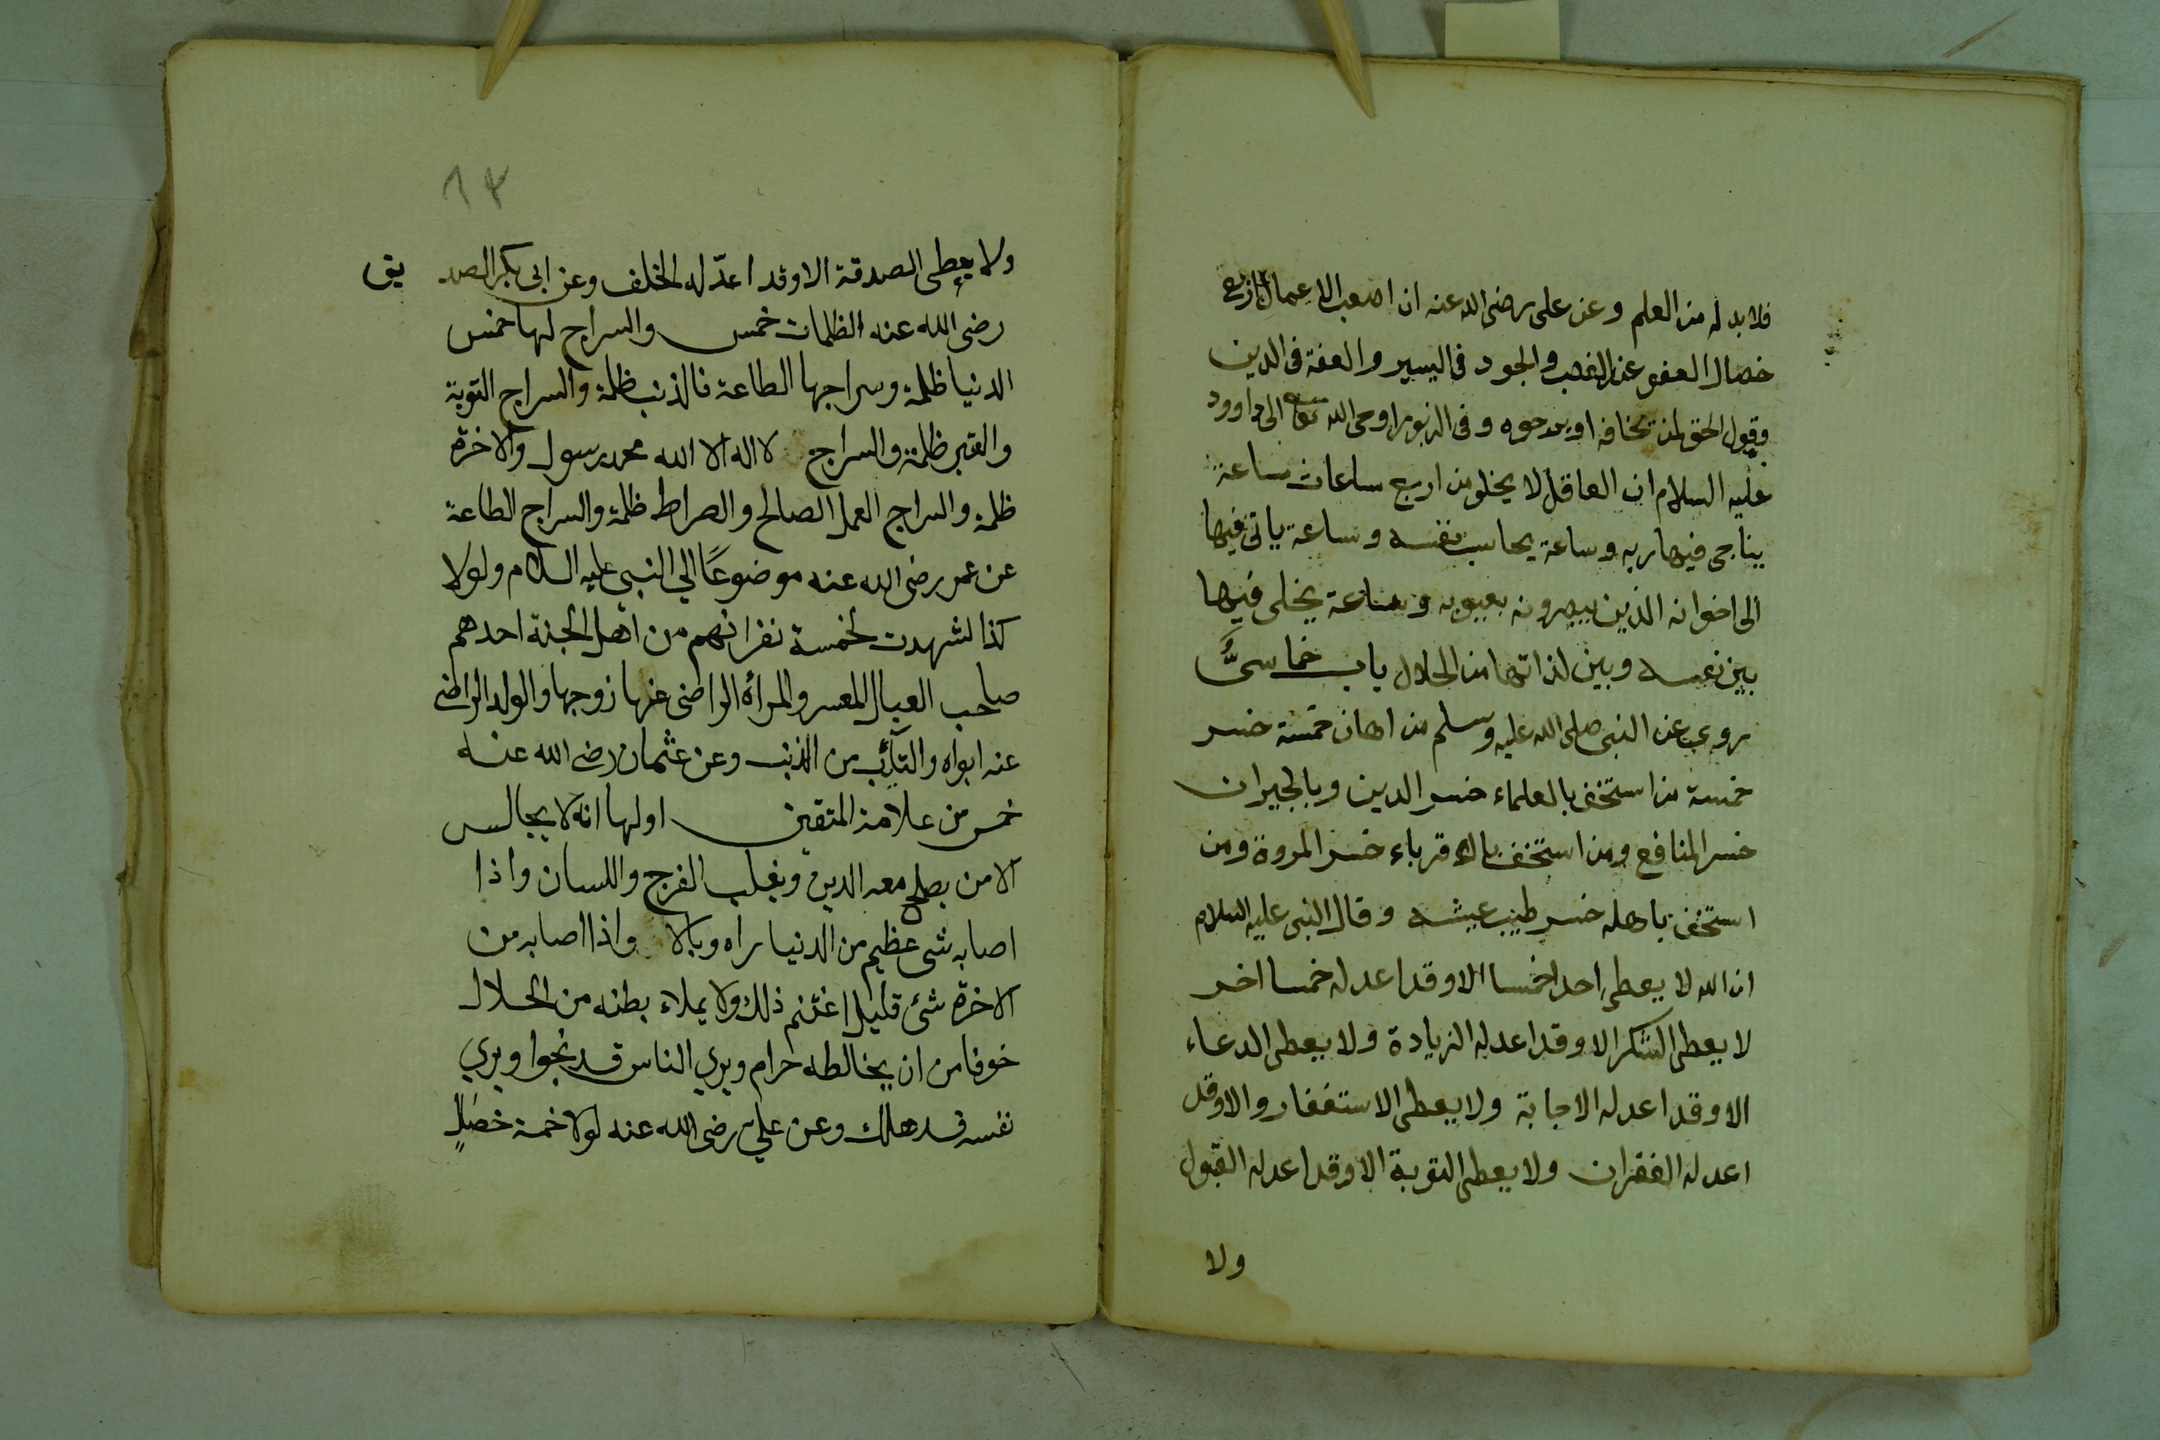 فلا بد له من العلم وعن على رضى الله عنه ان اصعب الاعمال اربع
خصال العفو عند الغضب والجود فى اليسير والعفة فى الدين
وقول الحق لمن يخافه او يرجوه وفى الزبور اوحى الله تعالى الى داوود
عليه السلام ان العاقل لا يخلو من اربع ساعات ساعة
يناجى فيها ربه وساعة يحاسب نفسه وساعة ياتى فيها
الى اخوانه الذين يبصرونه بعيوبه وساعة يخلى فيها
بين نفسه وبين لذاتها من الحلال باب خماسىٌّ
روى عن النبى صلى الله عليه وسلم من اهان خمسة خسر
خمسة من استخف بالعلماء خسر الدين وبالجيران
خسر المنافع ومن استخف بالاقرباء خسر المروة ومن
استخف باهله خسر طيب عيشه وقال النبى عليه السلام
ان الله لا يعطى احدا خمسا الا وقد اعد له خمسا اخر
لا يعطى الشكر الا وقد اعد له الزيادة ولا يعطى الدعاء
الا وقد اعد له الاجابة ولا يعطى الاستغفار والا وقد
اعد له الغفران ولا يعطى التوبة الا وقد اعد له القبول
ولا
١٣
ولا يعطى الصدقة الا وقد اعدّ له الخلف وعن ابى بكر الصديق
رضى الله عنه الظلمات خمس والسراج لها خمس
الدنيا ظلمة وسراجها الطاعة فالذنب ظلمة والسراج التوبة
والقبر ظلمة والسراج لا اله الا الله محمد رسول والاخرة
ظلمة والسراج العمل الصالح والصراط ظلمة والسراج الطاعة
عن عمر رضى الله عنه موضوعًا الي النبي عليه السلام ولولا
كذا لشهدت لخمسة نفر انهم من اهل الجنة احدهم
صاحب العيال المعسر والمرأة الراضى عنها زوجها والولد الراضى
عنه ابواه والتآئب من الذنب وعن عثمان رضى الله عنه
خمس من علامة المتقين اولها انه لا يجالس
الا من يصلح معه الدين ويغلب الفرج واللسان واذا
اصابه شى عظيم من الدنيا راه وبالا واذا اصابه من
الاخرة شئ قليل اغتنم ذلك ولا يملاء بطنه من الحلال
خوفا من ان يخالطه حرام ويري الناس قد نجوا ويري
نفسه قد هلك وعن علي رضى الله عنه لولا خمسة خصالٍ